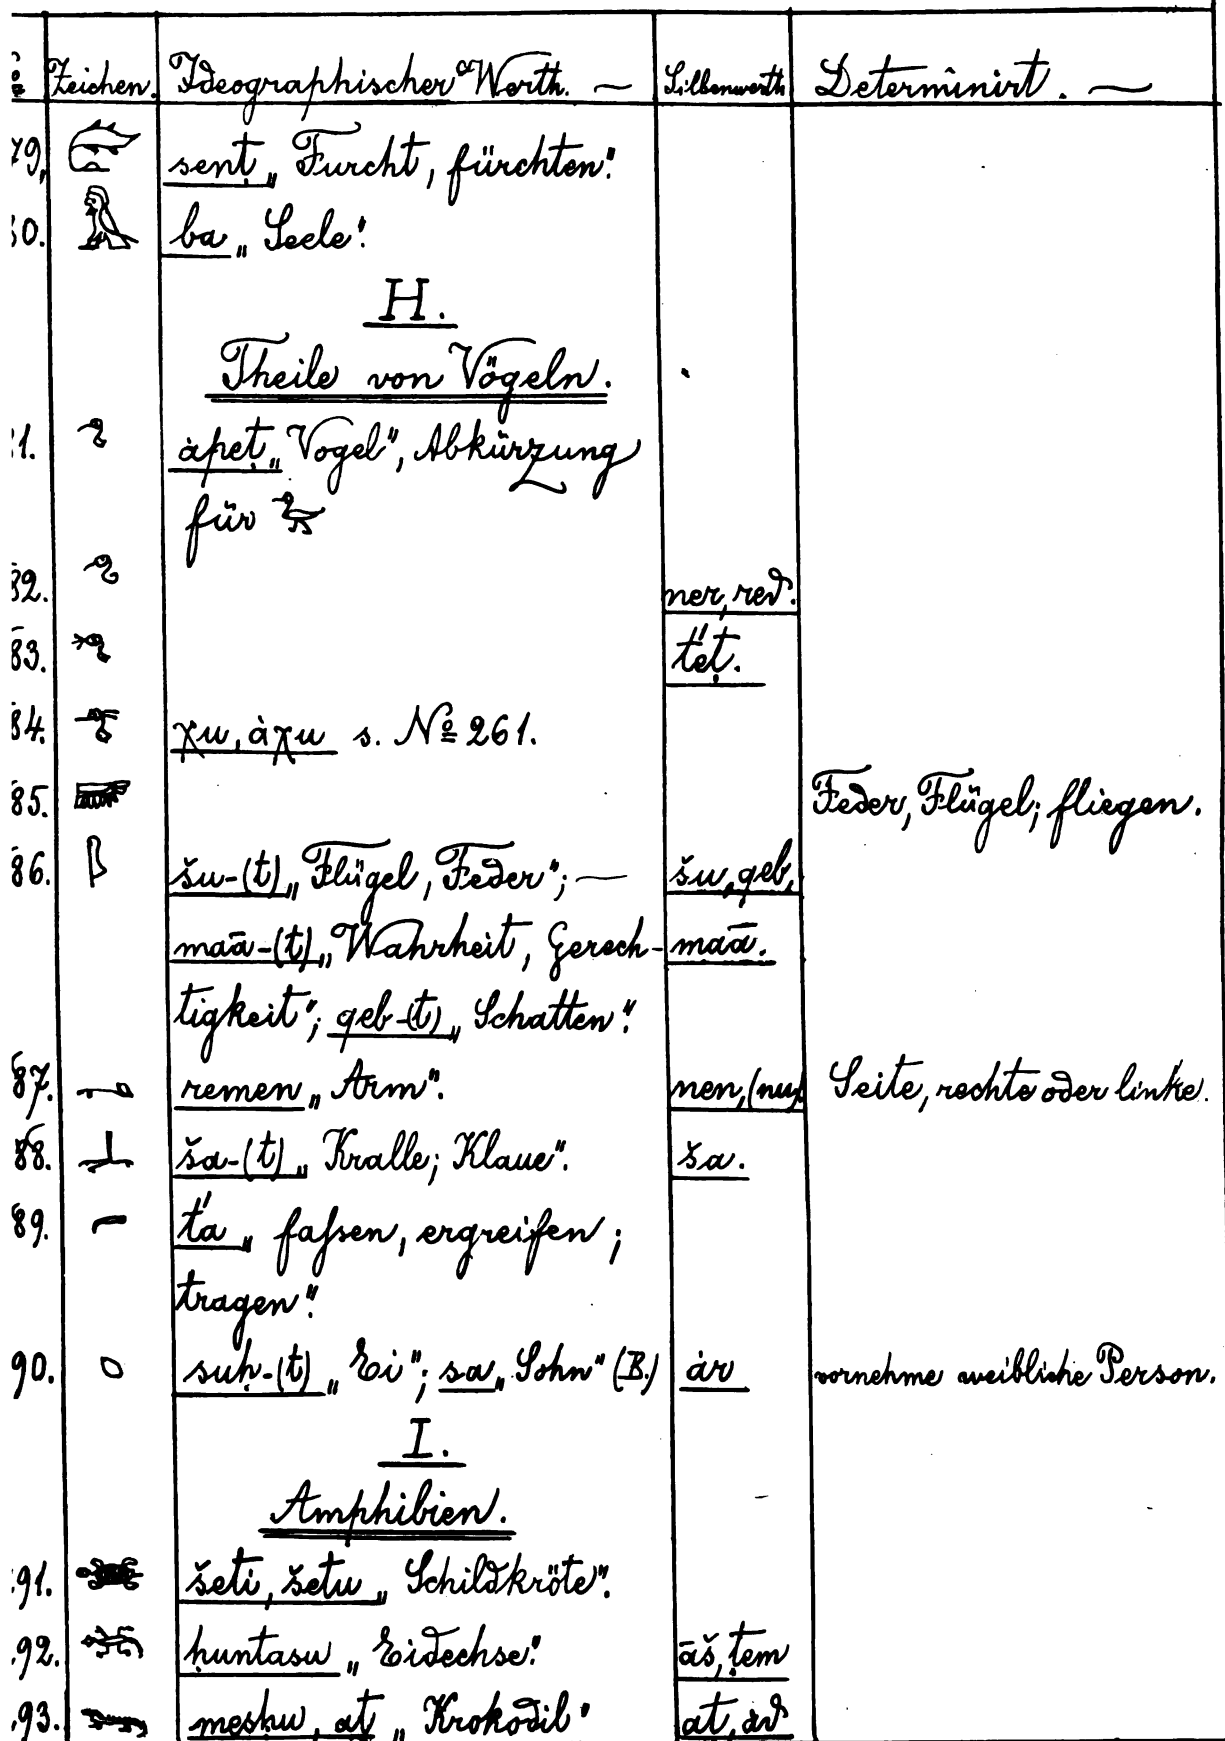 No Zeichen. Ideographischer Werth. — Silbenwerth Determinirt. —
79, senṭ „Furcht, fürchten“.
80. ba „Seele“.
H.
Theile von Vögeln.
1. ȧpeṭ „Vogel“, Abkürzung
für
82. ner, reḥ.
83. t́eṭ.
84. χu, ȧχu s. No 261.
85. Feder, Flügel; fliegen.
86. šu-(t) „Flügel, Feder“; — šu, qeb,
maā-(t) „Wahrheit, Gerech- maā.
tigkeit“; qeb-(t) „Schatten“.
87. remen „Arm“. nen, (nu). Seite, rechte oder linke.
88. ša-(t) „Kralle; Klaue“. ša.
89. t́a „faſsen, ergreifen;
tragen“.
90. suḥ-(t) „Ei“; sa „Sohn“ (B.) ȧr vornehme weibliche Person.
I.
Amphibien.
91. šeti, šetu „Schildkröte“.
92. ḥuntasu „Eidechse“. āš, ṭem
93. mesḥu, aṭ „Krokodil“ at,